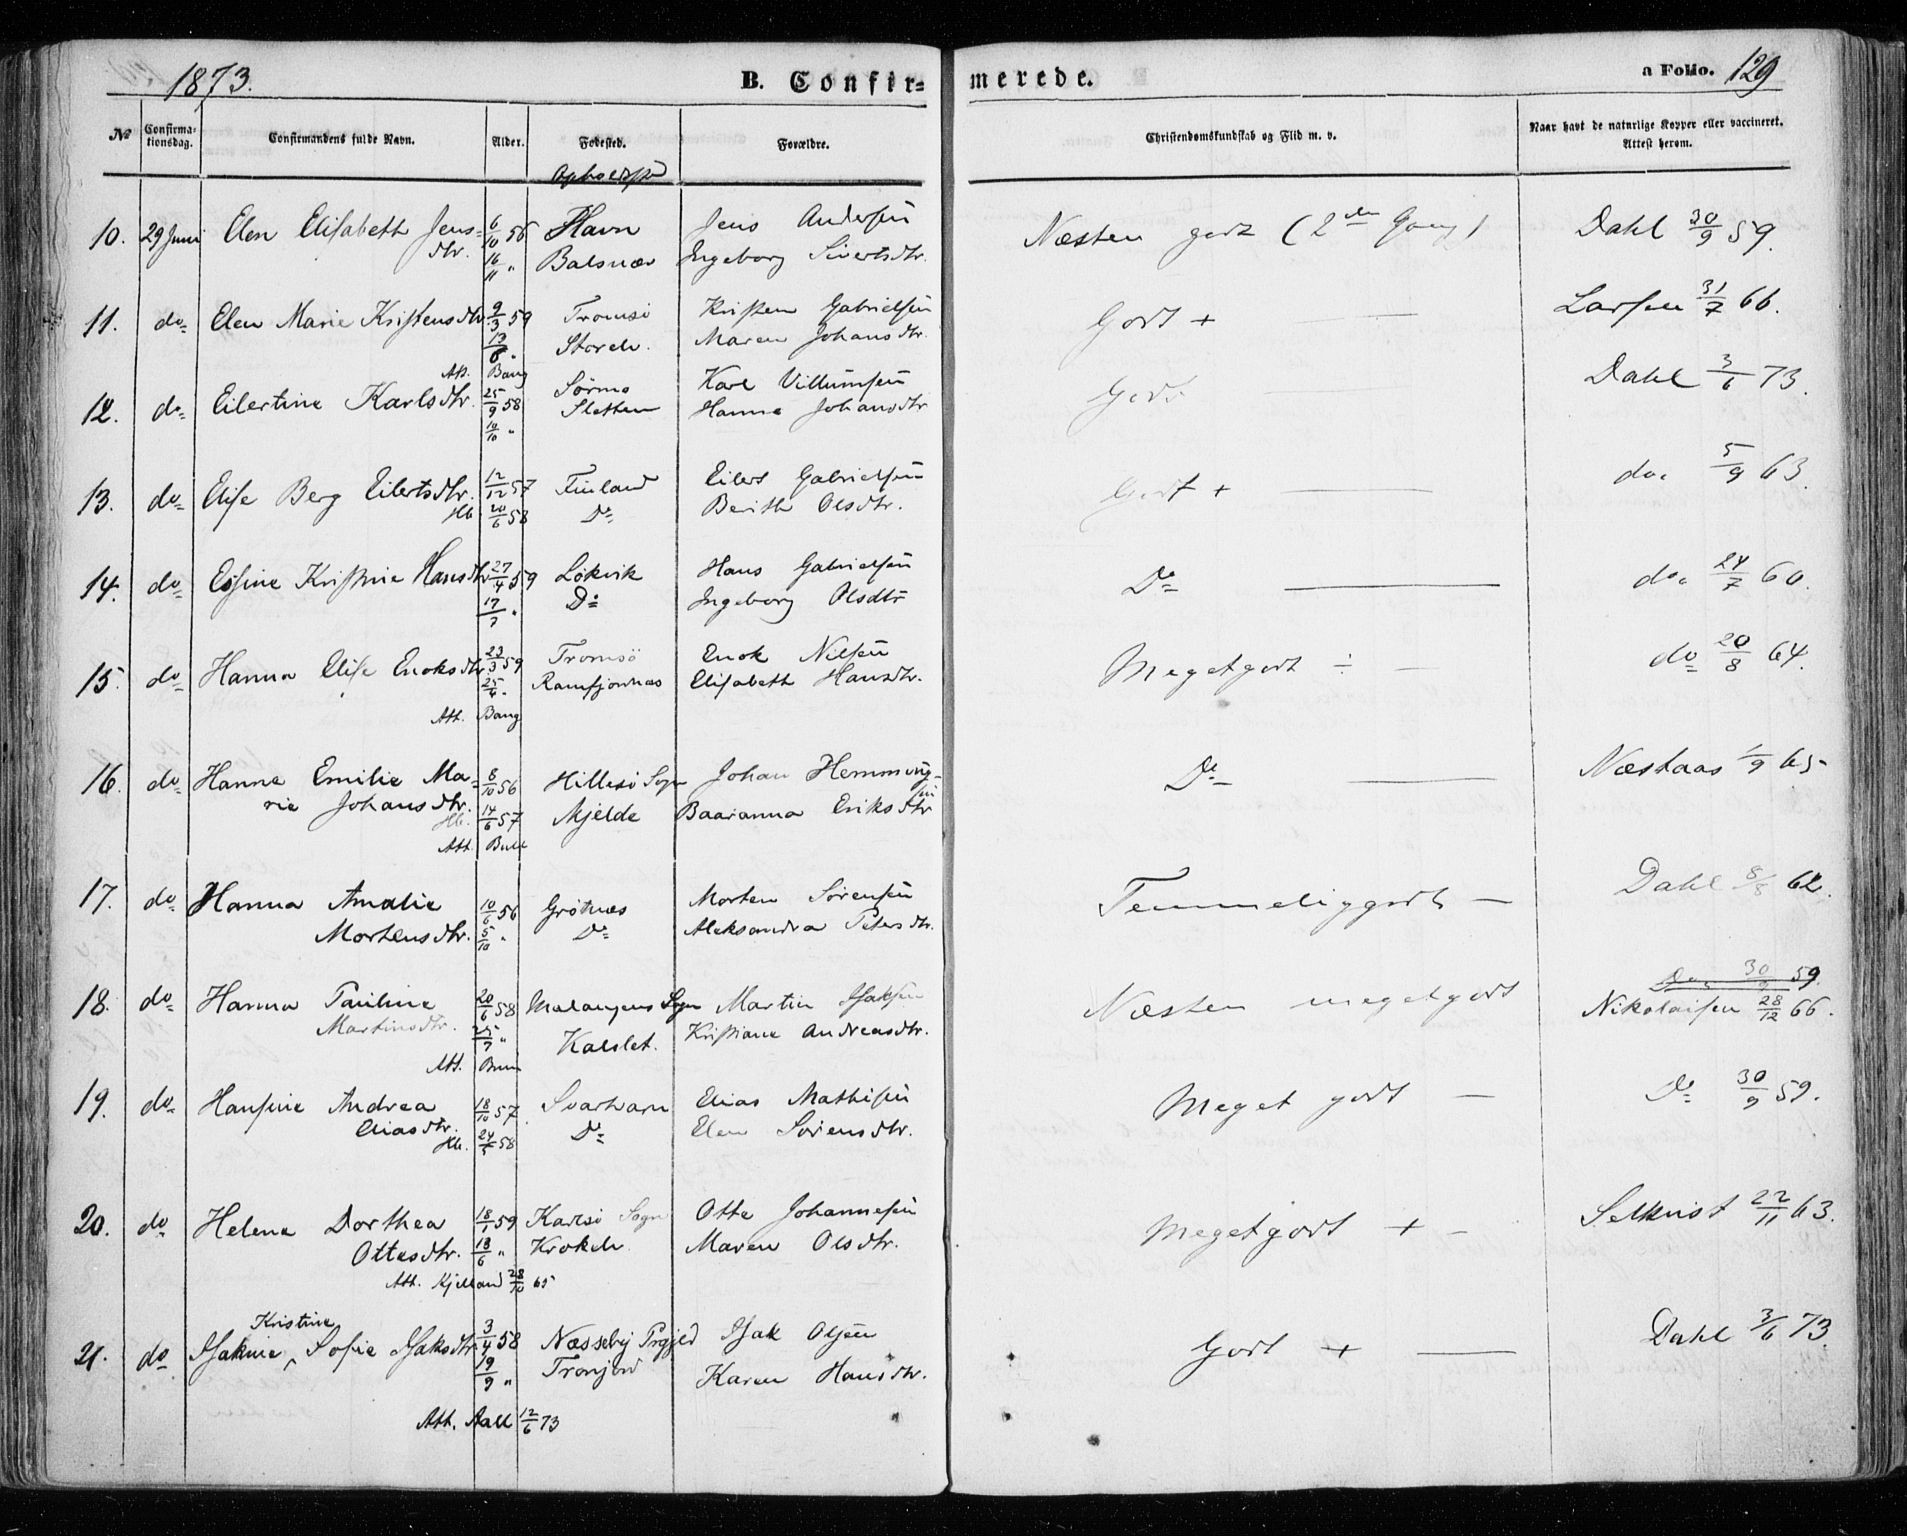 1873.
B. Confir-
merede.
a Folio. 129
No
Confirma-
tionsdag.
Confirmandens fulde Navn.
Alder.
Fødested.
Forældre.
Christendomskundskab og Flid m. v.
Naar havt de naturlige Kopper eller vaccineret.
Attest herom.
10. 29 Juni Elen Elisabeth Jens- 6/10 56 Havn Jens Andersen Næsten godt (2den Gang) Dahl 30/9 59.
dtr. 16/11 " Balsnæs Ingeborg Sivertsdtr.
11. do Elen Marie Kristensdtr. 9/3 59 Tromsö Kristen Gabrielsen Godt + — Larsen 31/7 66.
13/8 " Storeh. Maren Johansdtr.
Att. Bang
12. do Eilertine Karlsdtr. 25/9 58 Sörmo Karl Villumsen Godt — Dahl 3/6 73.
10/10 " Sletten Hanna Johansdtr
13. do Elise Berg Eilertsdtr. 12/12 57 Finland Eilert Gabrielsen Godt + — do. 5/9 63.
Hb. 20/6 58 Do Berith Olsdtr.
14. do Essine Kristine Hansdtr 27/4 59 Lökvik Hans Gabrielsen Do — do. 24/7 60.
17/7 " Do Ingeborg Olsdtr
15. do Hanna Elise Enoksdtr. 23/3 59 Tromsö Enok Nilsen Megetgodt ÷ — do 20/8 64.
25/4 " Ramfjordnæs Elisabeth Hansdtr.
Att. Bang
16. do Hanna Emilie Ma- 8/10 56 Hillesö Sogn Johan Hemming- Do — Næstaas 1/9 65
rie Johansdtr. sen
Hb. 14/6 57 Mjelde Baaranna Eriksdtr
Att. Bull
17. do Hanna Amalie 10/6 56 Grötnæs Morten Sörensen Temmeliggodt — Dahl 8/8 62.
Mortensdtr. 5/10 " Do Aleksandra Petersdtr.
18. do Hanna Pauline 20/6 58 Malangens Sogn Martin Isaksen Næsten megetgodt Do 30/9 59.
Martinsdtr. 25/7 " Kalslet. Kristiane Andreasdtr. Nikolaisen 28/12 66.
Att.
19. do Hansine Andrea 18/10 57. Svarvarn Elias Mathisen Meget godt — Do 30/9 59.
Eliasdtr. Hb. 24/5 58 Do Elen Sörensdtr.
20. do Helena Dorthea 18/1 59 Karlsö Sogn Otte Johannesen Megetgodt + — Selkvist 22/11 63.
Ottesdtr. 18/6 " Krokelv Maren Olsdtr.
Att. Kjelland 28/10 65
Kristine
21. do Isakine Sofie Isaksdtr. 3/4 58 Næsseby Prgjeld Isak Olsen Godt + — Dahl 3/6 73.
19/9 " Tronjord Karen Hansdtr.
Att. Aall 12/6 73